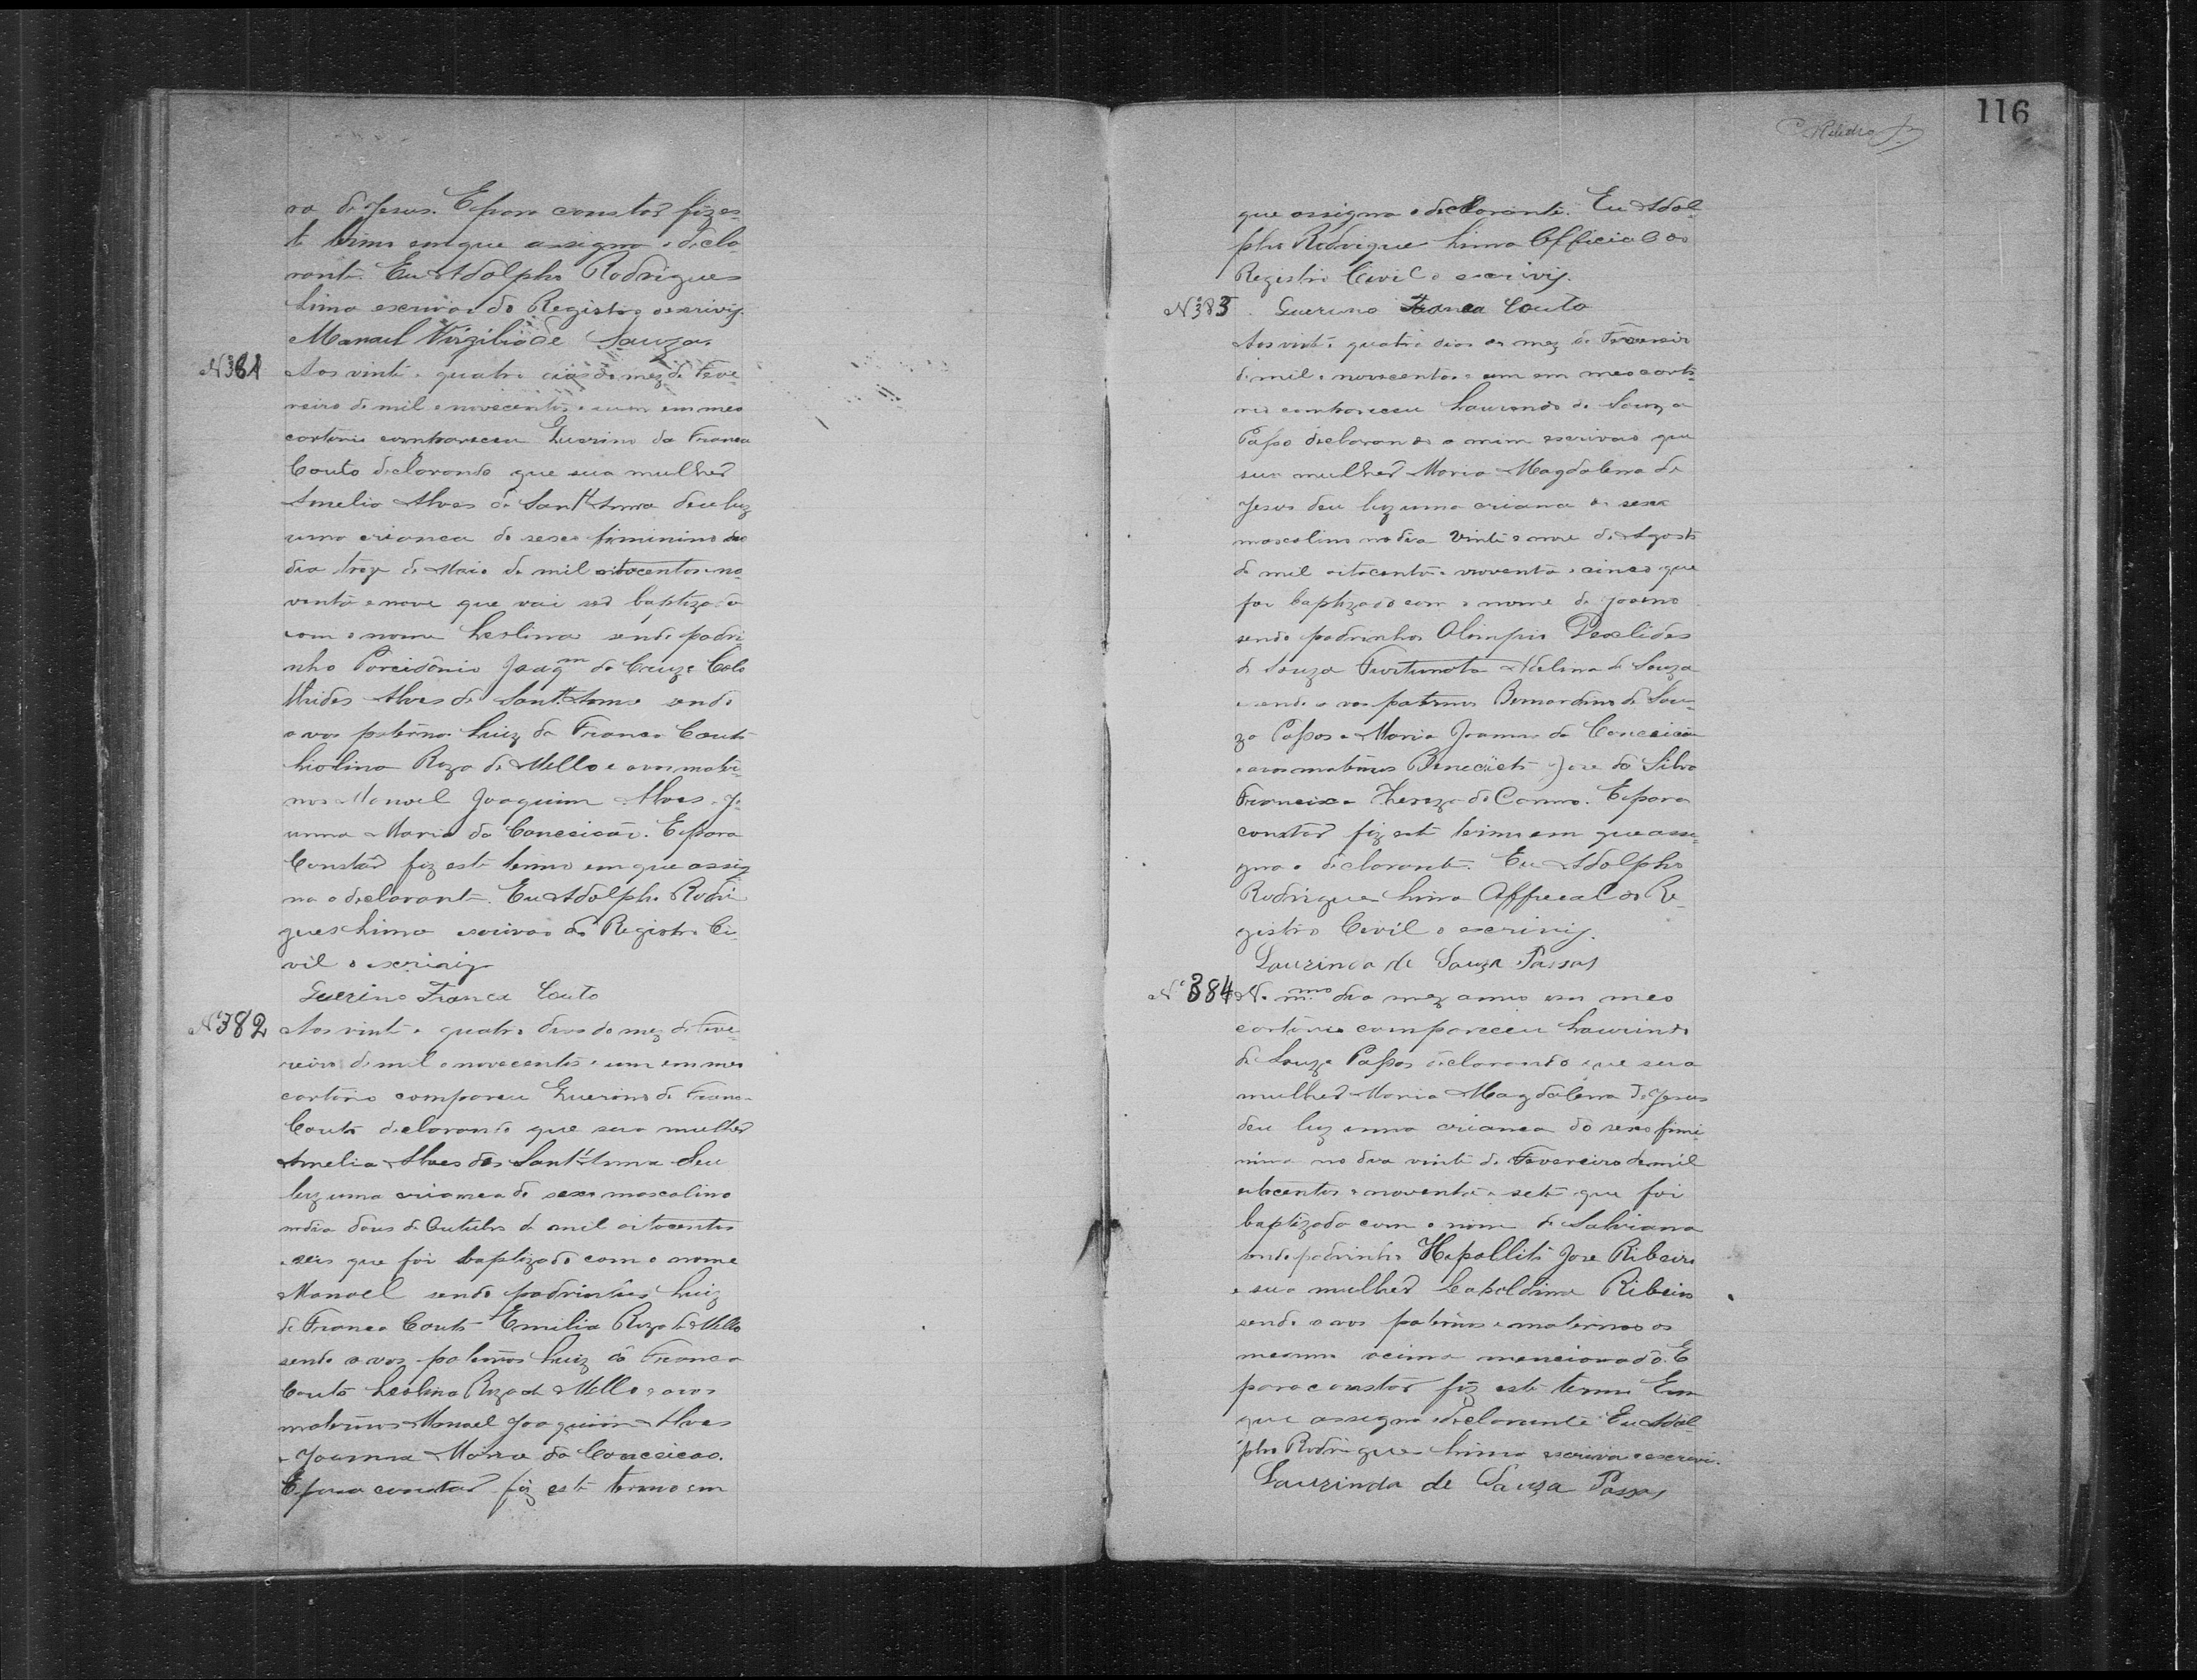 ra de Jesus. E para constar fiz es-
te termo em que assigna o decla
rante. Eu Adolpho Rodrigues
Lima escrivão do Registro o escrivij.
Manuel Virgilio de Souza.
Nº 381 Aos vinte e quatro dias do mez de Feve-
reiro de mil e novecentos e um em meo
cartorio compareceu Guerino da Franca
Couto declarando que sua mulher
Amelia Alves de Sant'Anna deu luz
uma crianca do sexo feminino do
dia treze de Maio de mil oitocentos no-
venta e nove que vai ser baptizada
com o nome Leolina sendo padri
nho Joaqm da Cruz e
Alves de Sant'Anna sendo
avos paternos Luiz da Franca Couto
Roza de Mello e avos mater-
nos Manoel Joaquim Alves e Jo
anna Maria da Conceicão. E para
Constar fiz este termo em que assig
na o declarante. Eu Adolpho Rodri
gues Lima escrivão do Registro Ci-
vil o escrivij
Guerino Franca Couto
Nº 382 Aos vinte e quatro dias do mez de Feve-
reiro de mil e novecentos e um em meo
cartorio compareu Guerino da Franca
Couto declarando que sua mulher
Amelia Alves de Sant'Anna deu
luz uma crianca do sexo mascolino
no dia dous de Outubro de mil oitocentos
e seis que foi baptizado com o nome
Manoel sendo padrinhos Luiz
da Franca Couto Emilia Roza de Mello
sendo avos paternos Luiz da Franca
Couto Leolina Roza de Mello e avos
maternos Manoel Joaquim Alves
e Joanna Maria da Conceicao.
E para constar fiz este termo em
116
que assigna o declarante. Eu Adol-
pho Rodrigues Lima Official do
Registro Civil o escrivij.
Nº 383 Guerino Franca Couto
Aos vinte e quatro dias do mez de Fevereiro
de mil e novecentos e um em meo carto-
rio compareceu Laurindo de Souza
Passo declarando a mim escrivão que
sua mulher Maria Magdalena de
Jesus deu luz uma criana do sexo
mascolino no dia vinte e nove de Agosto
de mil oitocentos e noventa e cinco que
foi baptizado com o nome de
sendo padrinhos Olimpio
de Souza Furtunata Adelina de Souza
e sendo avos paternos Bernardino de Sou-
za Passos e Maria Joanna da Conceicão
e avos maternos Benedicto Jose da Silva
Francisca Thereza do Carmo. E para
constar fiz este termo em que assi-
gna o declarante. Eu Adolpho
Rodrigues Lima Official do Re-
gistro Civil o escrivij.
Laurindo de Souza Passos
Nº 384 No mmo dia mez anno em meo
cartorio compareceu Laurindo
de Souza Passos declarando que sua
mulher Maria Magdalena de Jesus
deu luz uma crianca do sexo femi-
nina no dia vinte de Fevereiro de mil
oitocentos e noventa e sete que foi
baptizada com o nome de Salviana
sendo padrinho Hipolliti Jose Ribeiro
e sua mulher Leopoldina Ribeiro
sendo avos paternos e maternos os
mesmos acima mencionado. E
para constar fiz este termo Em
que assigna o declarante Eu Adol-
pho Rodrigues Lima escrivão o escrevi.
Laurindo de Souza Passos